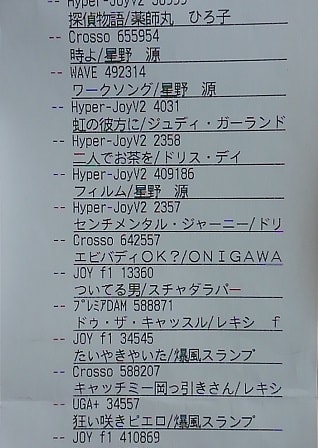 -- Hyper-JoyV2
探偵物語/薬師丸　ひろ子
-- Crosso 655954
時よ/星野　源
-- WAVE 492314
ワークソング/星野　源
-- Hyper-JoyV2 4031
虹の彼方に/ジュディ・ガーランド
-- Hyper-JoyV2 2358
二人でお茶を/ドリス・デイ
-- Hyper-JoyV2 409186
フィルム/星野　源
-- Hyper-JoyV2 2357
センチメンタル・ジャーニー/ドリ
-- Crosso 642557
エビバディOK?/ONIGAWA
-- JOY f1 13360
ついてる男/スチャダラパー
-- プレミアDAM 588871
ドゥ・ザ・キャッスル/レキシ　f
-- JOY f1 34545
たいやきやいた/爆風スランプ
-- Crosso 588207
キャッチミー岡っ引きさん/レキシ
-- UGA+ 34557
狂い咲きピエロ/爆風スランプ
-- JOY f1 410869